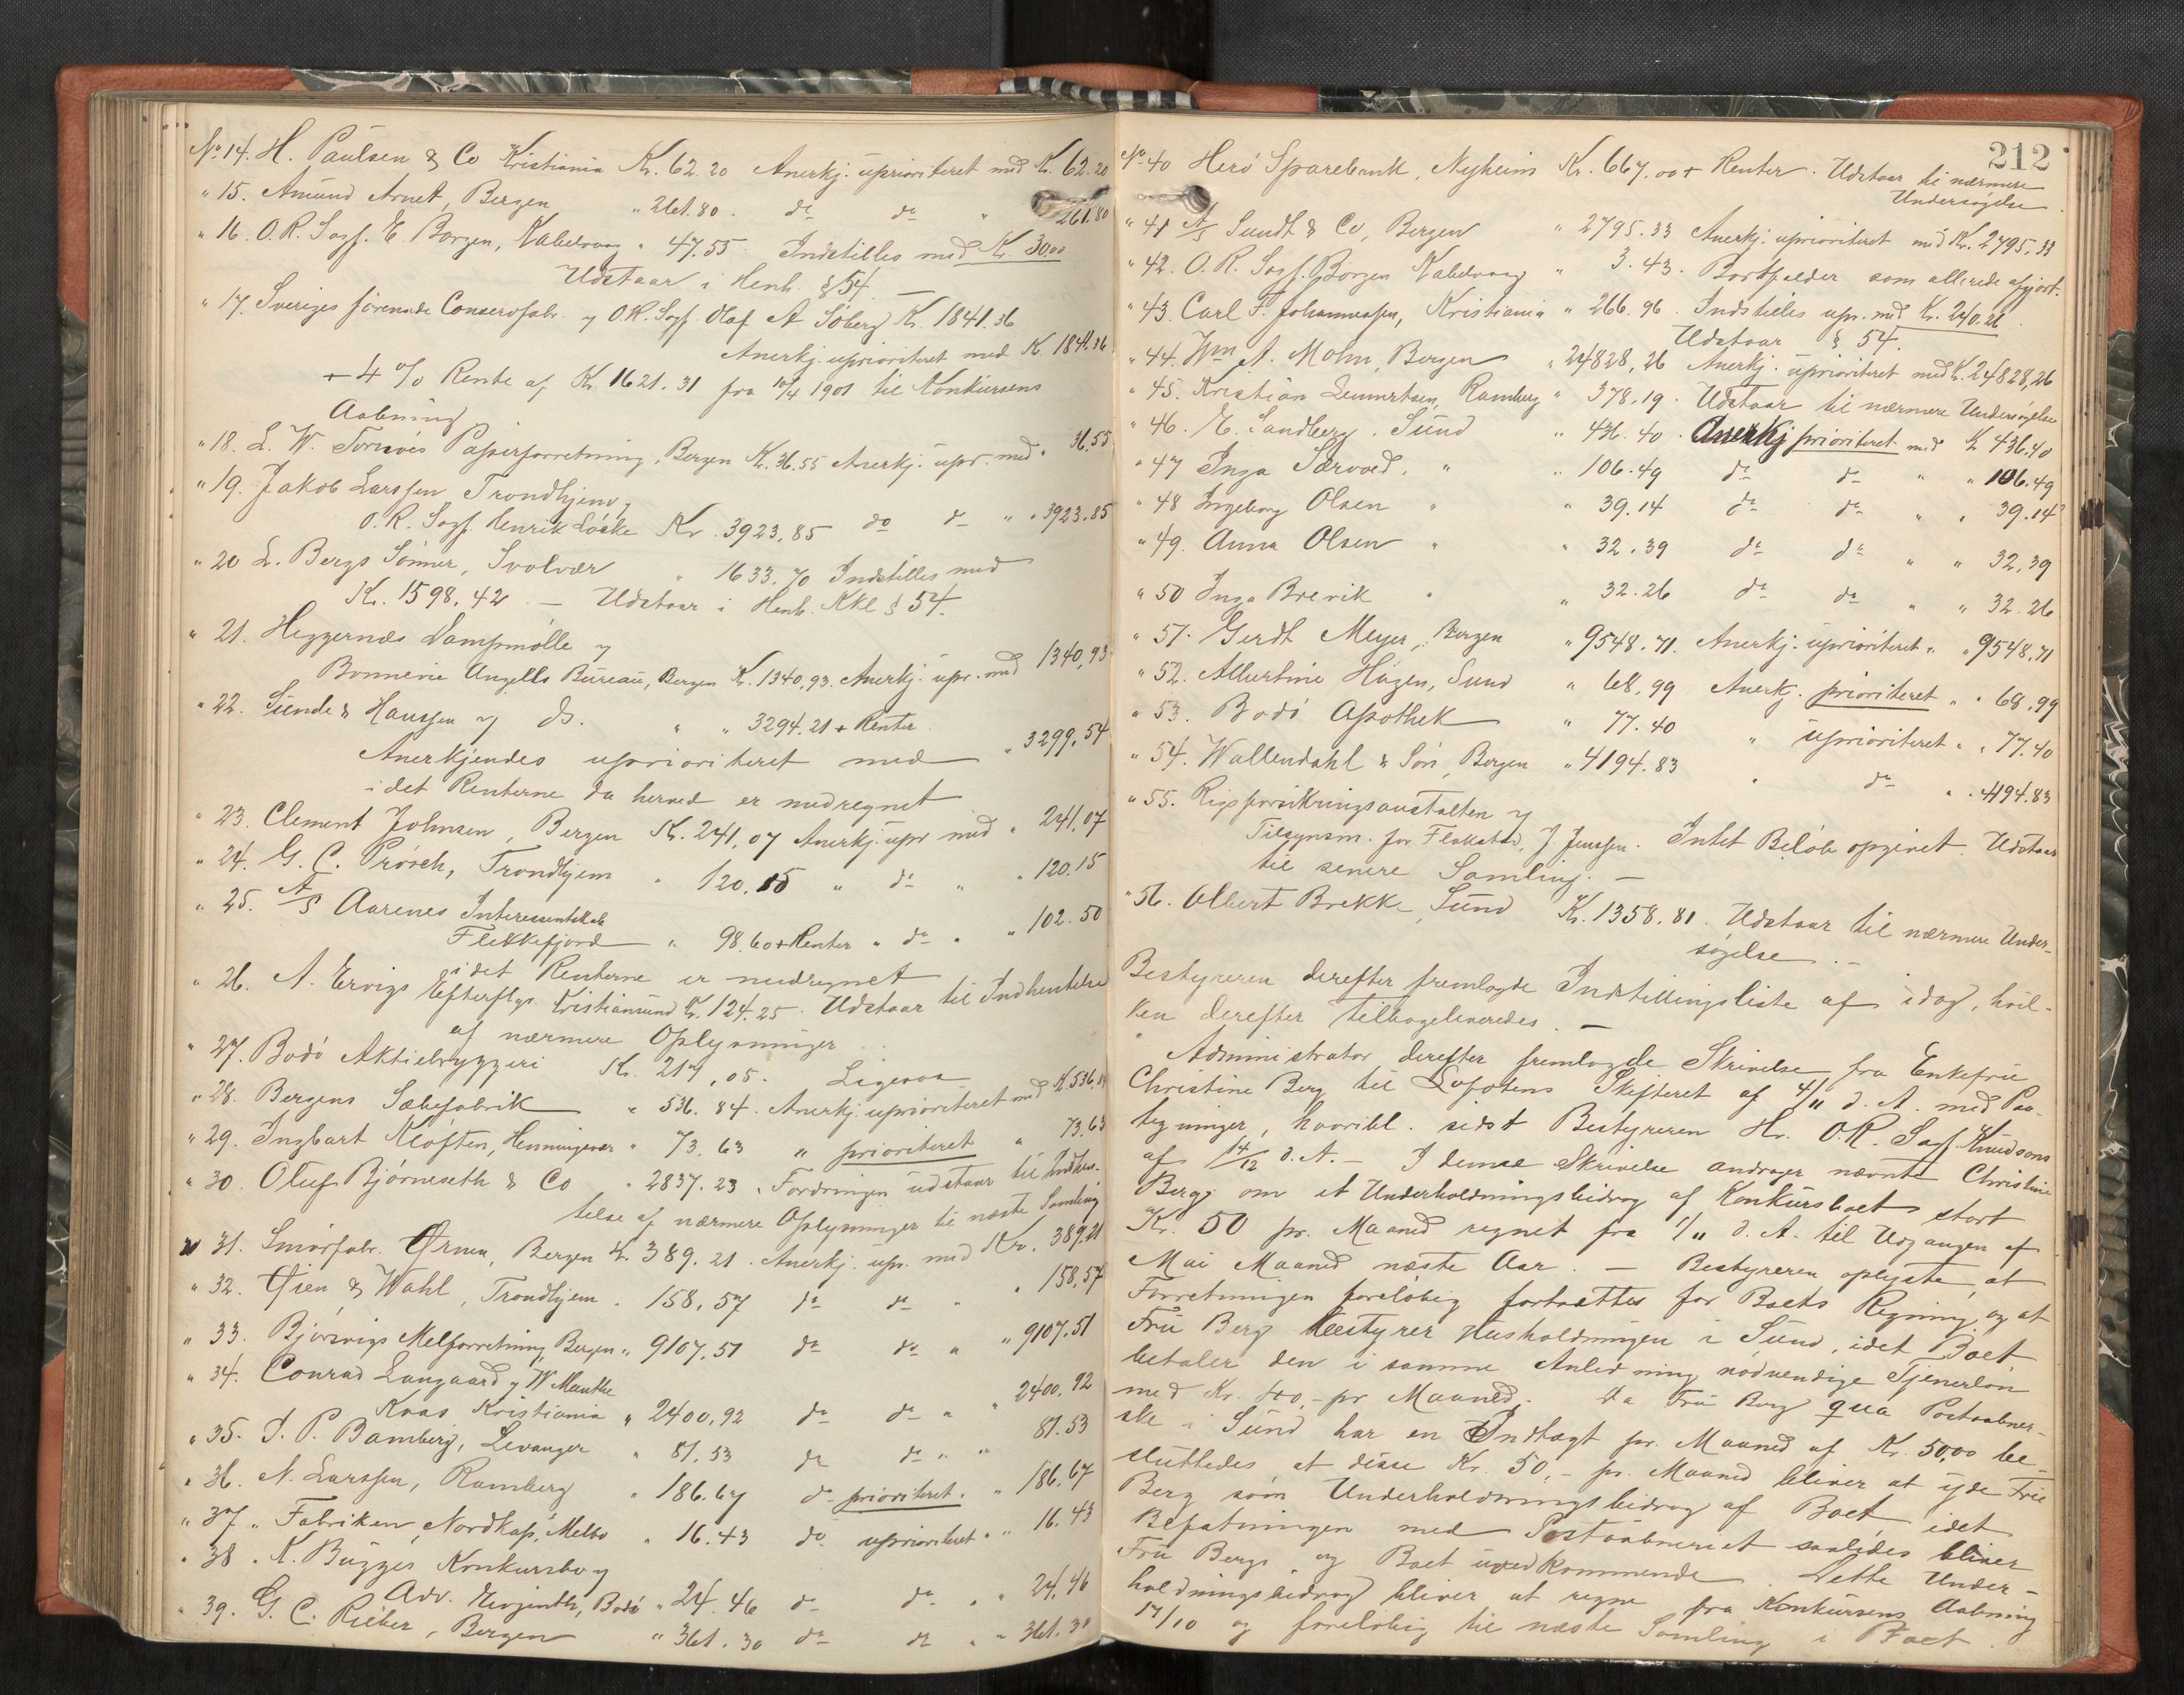 No 14. H. Paulsen & Co Kristiania Kr. 62.20 Anerkj. uprioriteret med Kr. 62.20
" 15. Amund Arnet, Bergen " 261.80. do do " 261.80
" 16. O.R. Sagf. E. Borgen, Kabelvaag " 47.55 Indstilles med Kr. 30.00
Udstaar i Henh. § 54. —
" 17. Sveriges förenade Conservfabr. v O.R. Sagf. Olaf A Soberg Kr. 1841.36
Anerkj. uprioriteret med K. 1841.36
+ 4 % Rente af Kr. 1621.31 fra 10/4 1901 til Konkursens
Aabning
" 18. L. W. Tornöes Papirforretning, Bergen Kr. 36.55 Anerkj. upr. med " 36.55
" 19. Jakob Larssen Trondhjem,
O.R. Sagf. Henrik Löcke Kr. 3923,85 do do " " 3923.85
" 20 L. Bergs Sönner, Svolvær " 1633.70 Indstilles med
Kr. 1598,42 — Udstaar i Henh. Kkl § 54.
" 21. Heggernæs Dampmölle v
Bonnevie Angells Bureau, Bergen Kr. 1340,93. Anerkj. upr. med 1340,93
" 22. Sunde & Hanssen v do. " " 3294.21 + Renter
Anerkjendes uprioriteret med " 3299,54
i det Renterne da herved er medregnet
" 23. Clement Johnsen, Bergen Kr. 241,07 Anerkj. upr med " 241,07
" 24. G. C. Prösch, Trondhjem " 120.15 " do " " 120.15
" 25. A/S Aarenes Interessentskab
Flekkefjord " 98.60 + Renter " do " " 102.50
i det Renterne er medregnet
" 26. A. Ervigs Efterflgr. Kristiansund Kr. 124.25. Udstaar til Indhentelse
af nærmere Oplysninger
" 27. Bodö Aktiebryggeri Kr. 217,05. Ligesaa
" 28. Bergens Sæbefabrik " 536.84. Anerkj. uprioriteret med K. 536.84
" 29. Ingbart Klöften, Henningsvær " 73.63 " prioriteret " 73,63
" 30. Oluf Bjørneseth & Co " 2837.23. Fordringen udstaar til Indhen-
telse af nærmere Oplysninger til næste Samling
" 31. Smörfabr. Ørnen, Bergen Kr. 389.21. Anerkj. upr. med Kr. 389.21
" 32. Øien & Wahl, Trondhjem " 158,57 do do " " 158,57
" 33. Bjørsvigs Melforretning Bergen " 9107,51 do do " " 9107.51
" 34. Conrad Langaard v W Manthe
Kraas Kristiania " 2400,92 do do " " 2400.92
" 35. I. P. Bamberg, Levanger " 81.53 do do " " 81.53
" 36. N. Larssen, Ramberg " 186.67 do prioriteret " " 186.67
" 37 " Fabriken Nordkap, Melbo " 16.43 do uprioriteret " " 16.43
" 38. K. Bugges Konkursbo v
Adv. Bodö " 24.46 do do " " 24,46
" 39. G. C. Rieber, Bergen " 361.30 do do " " 361.30
212
No 40 Herö Sparebank, Nyheim Kr. 667.00 + Renter. Udstaar til nærmere
Undersøgelse.
" 41 A/S Sundt & Co, Bergen " 2795.33 Anerkj. uprioriteret med Kr. 2795,33
" 42. O.R. Sagf. Borgen Kabelvaag " 3.43. Bortfalder som allerede afgjort.
" 43. Carl F. Johannessen, Kristiania " 266.96. Indstilles upr. med Kr. 240.26.
Udstaar § 54.
" 44. Wm A. Mohn, Bergen " 24828,26 Anerkj. uprioriteret med K. 24828,26
" 45. Kristian Lennertsen, Ramberg " 378.19. Udstaar til nærmere Undersøgelse
" 46. E. Sandberg. Sund " 436.40. Anerkj prioriteret med Kr 436.40
" 47 Inga Særvold, " " 106.49 do do " " 106.49
" 48 Ingeborg Olsen " " 39.14 do do " " 39.14
" 49. Anna Olsen " " 32.39 do do " " 32,39
" 50 Inga Brevik " " 32.26 do do " " 32.26
" 51. Gerdt Meyer, Bergen " 9548.71. Anerkj. uprioriteret " " 9548,71
" 52. Albertine Hagen, Sund " 68,99 Anerkj. prioriteret " " 68,99
" 53. Bodö Apothek " 77.40 " uprioriteret " " 77.40
" 54. Wallendahl & Sön, Bergen " 4194.83 " do " " 4194.83
" 55. Rigsforsikringsanstalten v
Tilsynsm. for Flakstad, J. Jenssen. Intet Beløb opgivet. Udstaar
til senere Samling. —
" 56. Albert Brekke, Sund Kr. 1358.81. Udstaar til nærmere Under-
søgelse. —
Bestyreren derefter fremlagde Indstillingsliste af idag, hvil-
ken derefter tilbageleveredes. —
Administrator derefter fremlagde Skrivelse fra Enkefrue
Christine Berg til Lofotens Skifteret af 4/11 d. A. med Paa-
tegninger, hvoribl. sidst Bestyreren Hr. O.R. Sagf. Knudsens
af 14/12 d.A. — I denne Skrivelse andrager nævnte Christine
Berg om et Underholdningsbidrag af Konkursboet stort
Kr. 50 pr. Maaned regnet fra 1/11 d. A. til Udgangen af
Mai Maaned næste Aar. — Bestyreren oplyste, at
Forretningen foreløbig fortsættes for Boets Regning, og at
Fru Berg bestyrer Husholdningen i Sund, idet Boet
betaler den i samme Anledning nødvendige Tjenerløn
med Kr. pr Maaned. Da Fru Berg qua Postaabner-
ske i Sund har en Indtægt pr. Maaned af Kr. 50,00 be-
sluttedes at disse Kr. 50,- pr. Maaned bliver at yde Fru
Berg som Underholdningsbidrag af Boet, idet
Befatningen med Postaabneriet saaledes bliver
Fru Bergs og Boet uvedkommende. Dette Under-
holdningsbidrag bliver at regne fra Konkursens Aabning
17/10 og foreløbig til næste Samling i Boet.